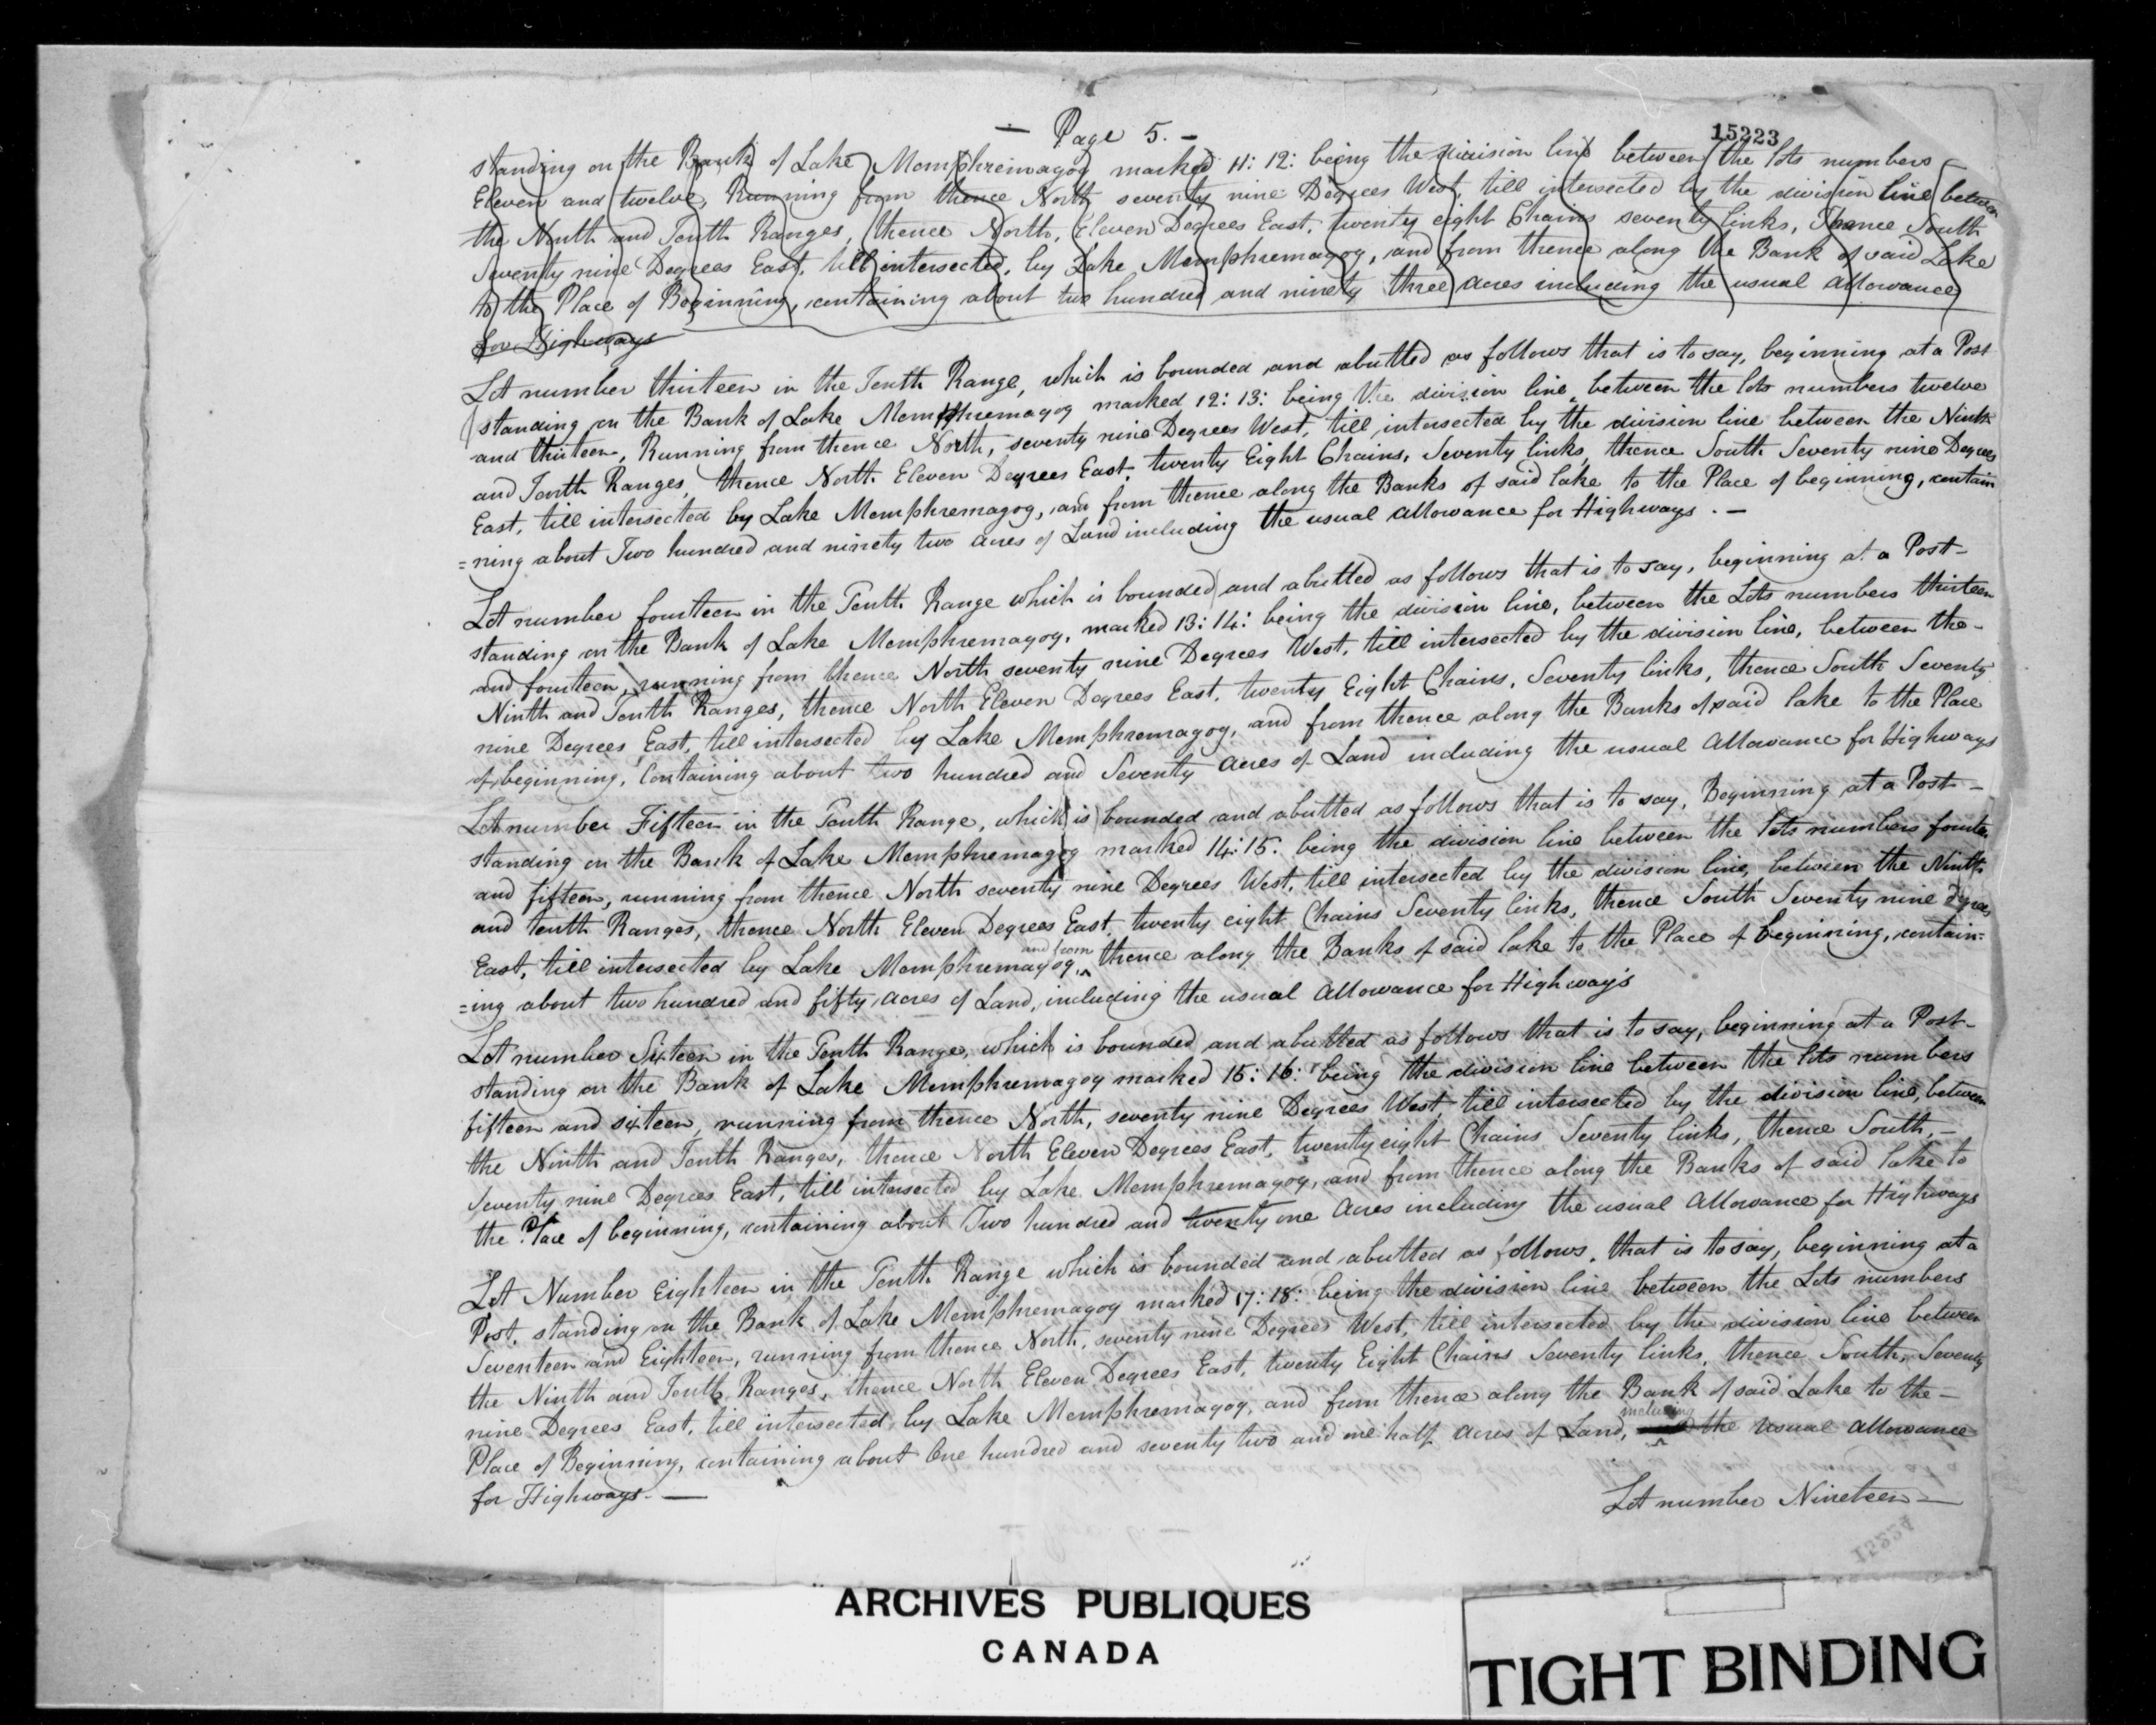 — Page 5. —
15223
standing on the Bank of Lake Memphremagog marked 11: 12: being the division line between the lots numbers
Eleven and twelve, Running from thence North seventy nine Degrees West, till intersected by the division line between
the Ninth and Tenth Ranges, thence North, Eleven Degrees East, twenty eight Chains seventy links, Thence South
Seventy nine Degrees East, till intersected, by Lake Memphremagog, and from thence along the Bank of said Lake
to the Place of Beginning, containing about two hundred and ninety three acres including the usual allowance
for Highways
Lot number thirteen in the Tenth Range, which is bounded and abutted as follows that is to say, beginning at a Post
standing on the Bank of Lake Memphremagog marked 12: 13: being the division line, between the lots numbers twelve
and thirteen, Running from thence North, seventy nine Degrees West, till intersected by the division line between the Ninth
and Tenth Ranges, thence North Eleven Degrees East, twenty Eight Chains, Seventy links, thence South Seventy nine Degrees
East, till intersected by Lake Memphremagog, and from thence along the Banks of said lake to the Place of beginning, contain
=ning about Two hundred and ninety two acres of Land including the usual allowance for Highways. —
Lot number fourteen in the Tenth Range which is bounded and abutted as follows that is to say, beginning at a Post —
standing on the Bank of Lake Memphremagog, marked 13: 14: being the division line, between the Lots numbers thirteen
and fourteen, running from thence North seventy nine Degrees West, till intersected by the division line, between the —
Ninth and Tenth Ranges, thence North Eleven Degrees East, twenty Eight Chains, Seventy links, thence South Seventy
nine Degrees East, till intersected by Lake Memphremagog, and from thence along the Banks of said lake to the Place
of beginning, Containing about two hundred and Seventy acres of Land including the usual Allowance for Highways
Lot number Fifteen in the Tenth Range, which is bounded and abutted as follows that is to say, Beginning at a Post —
standing on the Bank of Lake Memphremagog marked 14: 15: being the division line between the lots numbers fourteen
and fifteen, running from thence North seventy nine Degrees West, till intersected by the division line, between the Ninth
and tenth Ranges, thence North Eleven Degrees East, twenty eight Chains Seventy links, thence South Seventy nine degrees
East, till intersected by Lake Memphremagog, and from thence along the Banks of said lake to the Place of beginning, contain=
=ing about two hundred and fifty acres of Land, including the usual Allowance for Highways
Lot number Sixteen in the Tenth Range, which is bounded and abutted as follows that is to say, beginning at a Post —
standing on the Bank of Lake Memphremagog marked 15: 16: being the division line between the lots numbers
fifteen and sixteen, running from thence North, seventy nine Degrees West, till intersected by the division line, between
the Ninth and Tenth Ranges, thence North Eleven Degrees East, twenty eight Chains Seventy links, thence South, —
Seventy nine Degrees East, till intersected by Lake Memphremagog, and from thence along the Banks of said lake to
the Place of beginning, containing about Two hundred and twenty one Acres including the usual Allowance for Highways
Lot Number Eighteen in the Tenth Range which is bounded and abutted as follows, that is to say, beginning at a
Post, standing on the Bank of Lake Memphremagog marked 17: 18: being the division line between the Lots numbers
Seventeen and Eighteen, running from thence North, seventy nine Degrees West, till intersected by the division line between
the Ninth and Tenth Ranges, thence North Eleven Degrees East, twenty Eight Chains Seventy links, thence South, Seventy
nine Degrees East, till intersected by Lake Memphremagog, and from thence along the Bank of said Lake to the —
Place of Beginning, containing about One hundred and seventy two and one half acres of Land, including the usual allowance
for Highways. —
Lot number Nineteen —
15224
ARCHIVES PUBLIQUES
CANADA
TIGHT BINDING